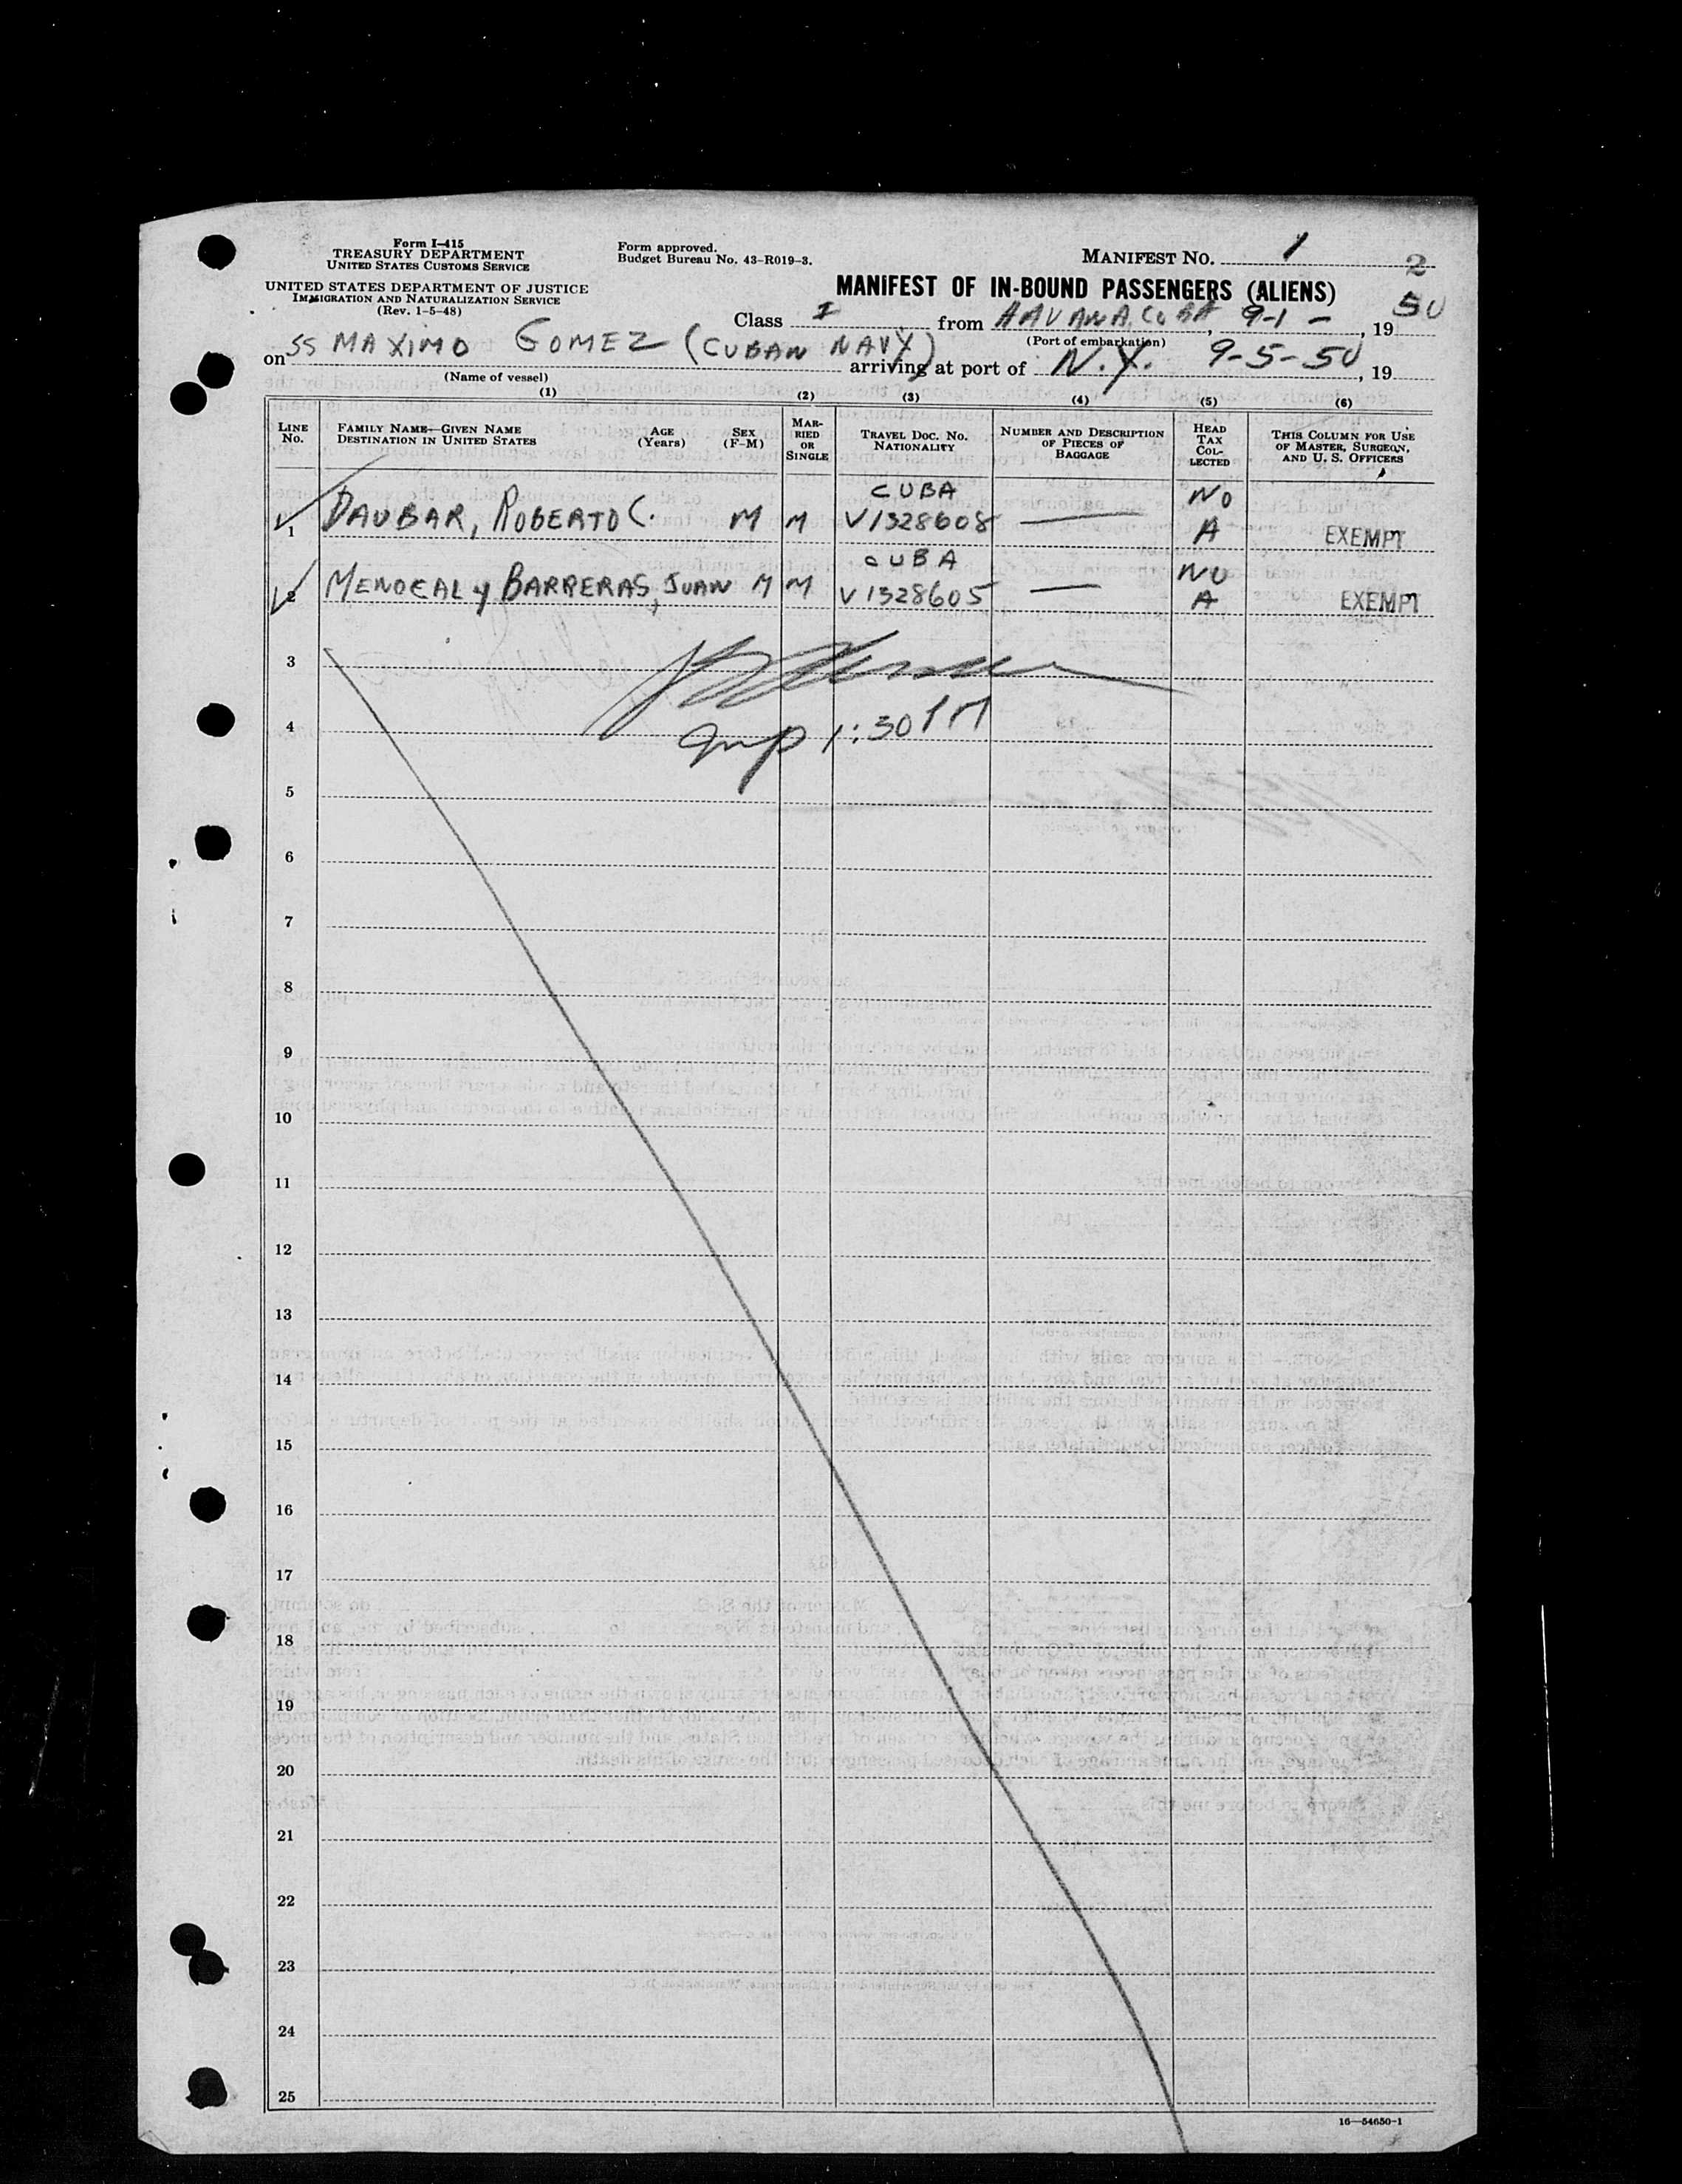 Form I-415
TREASURY DEPARTMENT
UNITED STATES CUSTOMS SERVICE
UNITED STATES DEPARTMENT OF JUSTICE
IMMIGRATION AND NATURALIZATION SERVICE
(Rev. 1-5-48)
Form approved.
Budget Bureau No. 43-R019-3.
MANIFEST NO. 1
2
MANIFEST OF IN-BOUND PASSENGERS (ALIENS)
Class I from HAVANA, CUBA, 9-1-, 19 50
(Port of embarkation)
on SS MAXIMO GOMEZ (CUBAN NAVY) arriving at port of N.Y. 9-5-50, 19
(Name of vessel)
(1) (2) (3) (4) (5) (6)
LINE No. FAMILY NAME—GIVEN NAME DESTINATION IN UNITED STATES AGE (Years) SEX (F-M) MARRIED OR SINGLE TRAVEL DOC. NO. NATIONALITY NUMBER AND DESCRIPTION OF PIECES OF BAGGAGE HEAD TAX COLLECTED THIS COLUMN FOR USE OF MASTER, SURGEON, AND U. S. OFFICERS
CUBA NO
1 DAUBAR, ROBERTO C. M M V1328608 — A EXEMPT
CUBA NO
2 MENOCAL y BARRERAS, JUAN M M V1328605 — A EXEMPT
3
4
1:30 PM
5
6
7
8
9
10
11
12
13
14
15
16
17
18
19
20
21
22
23
24
25
16—54650-1